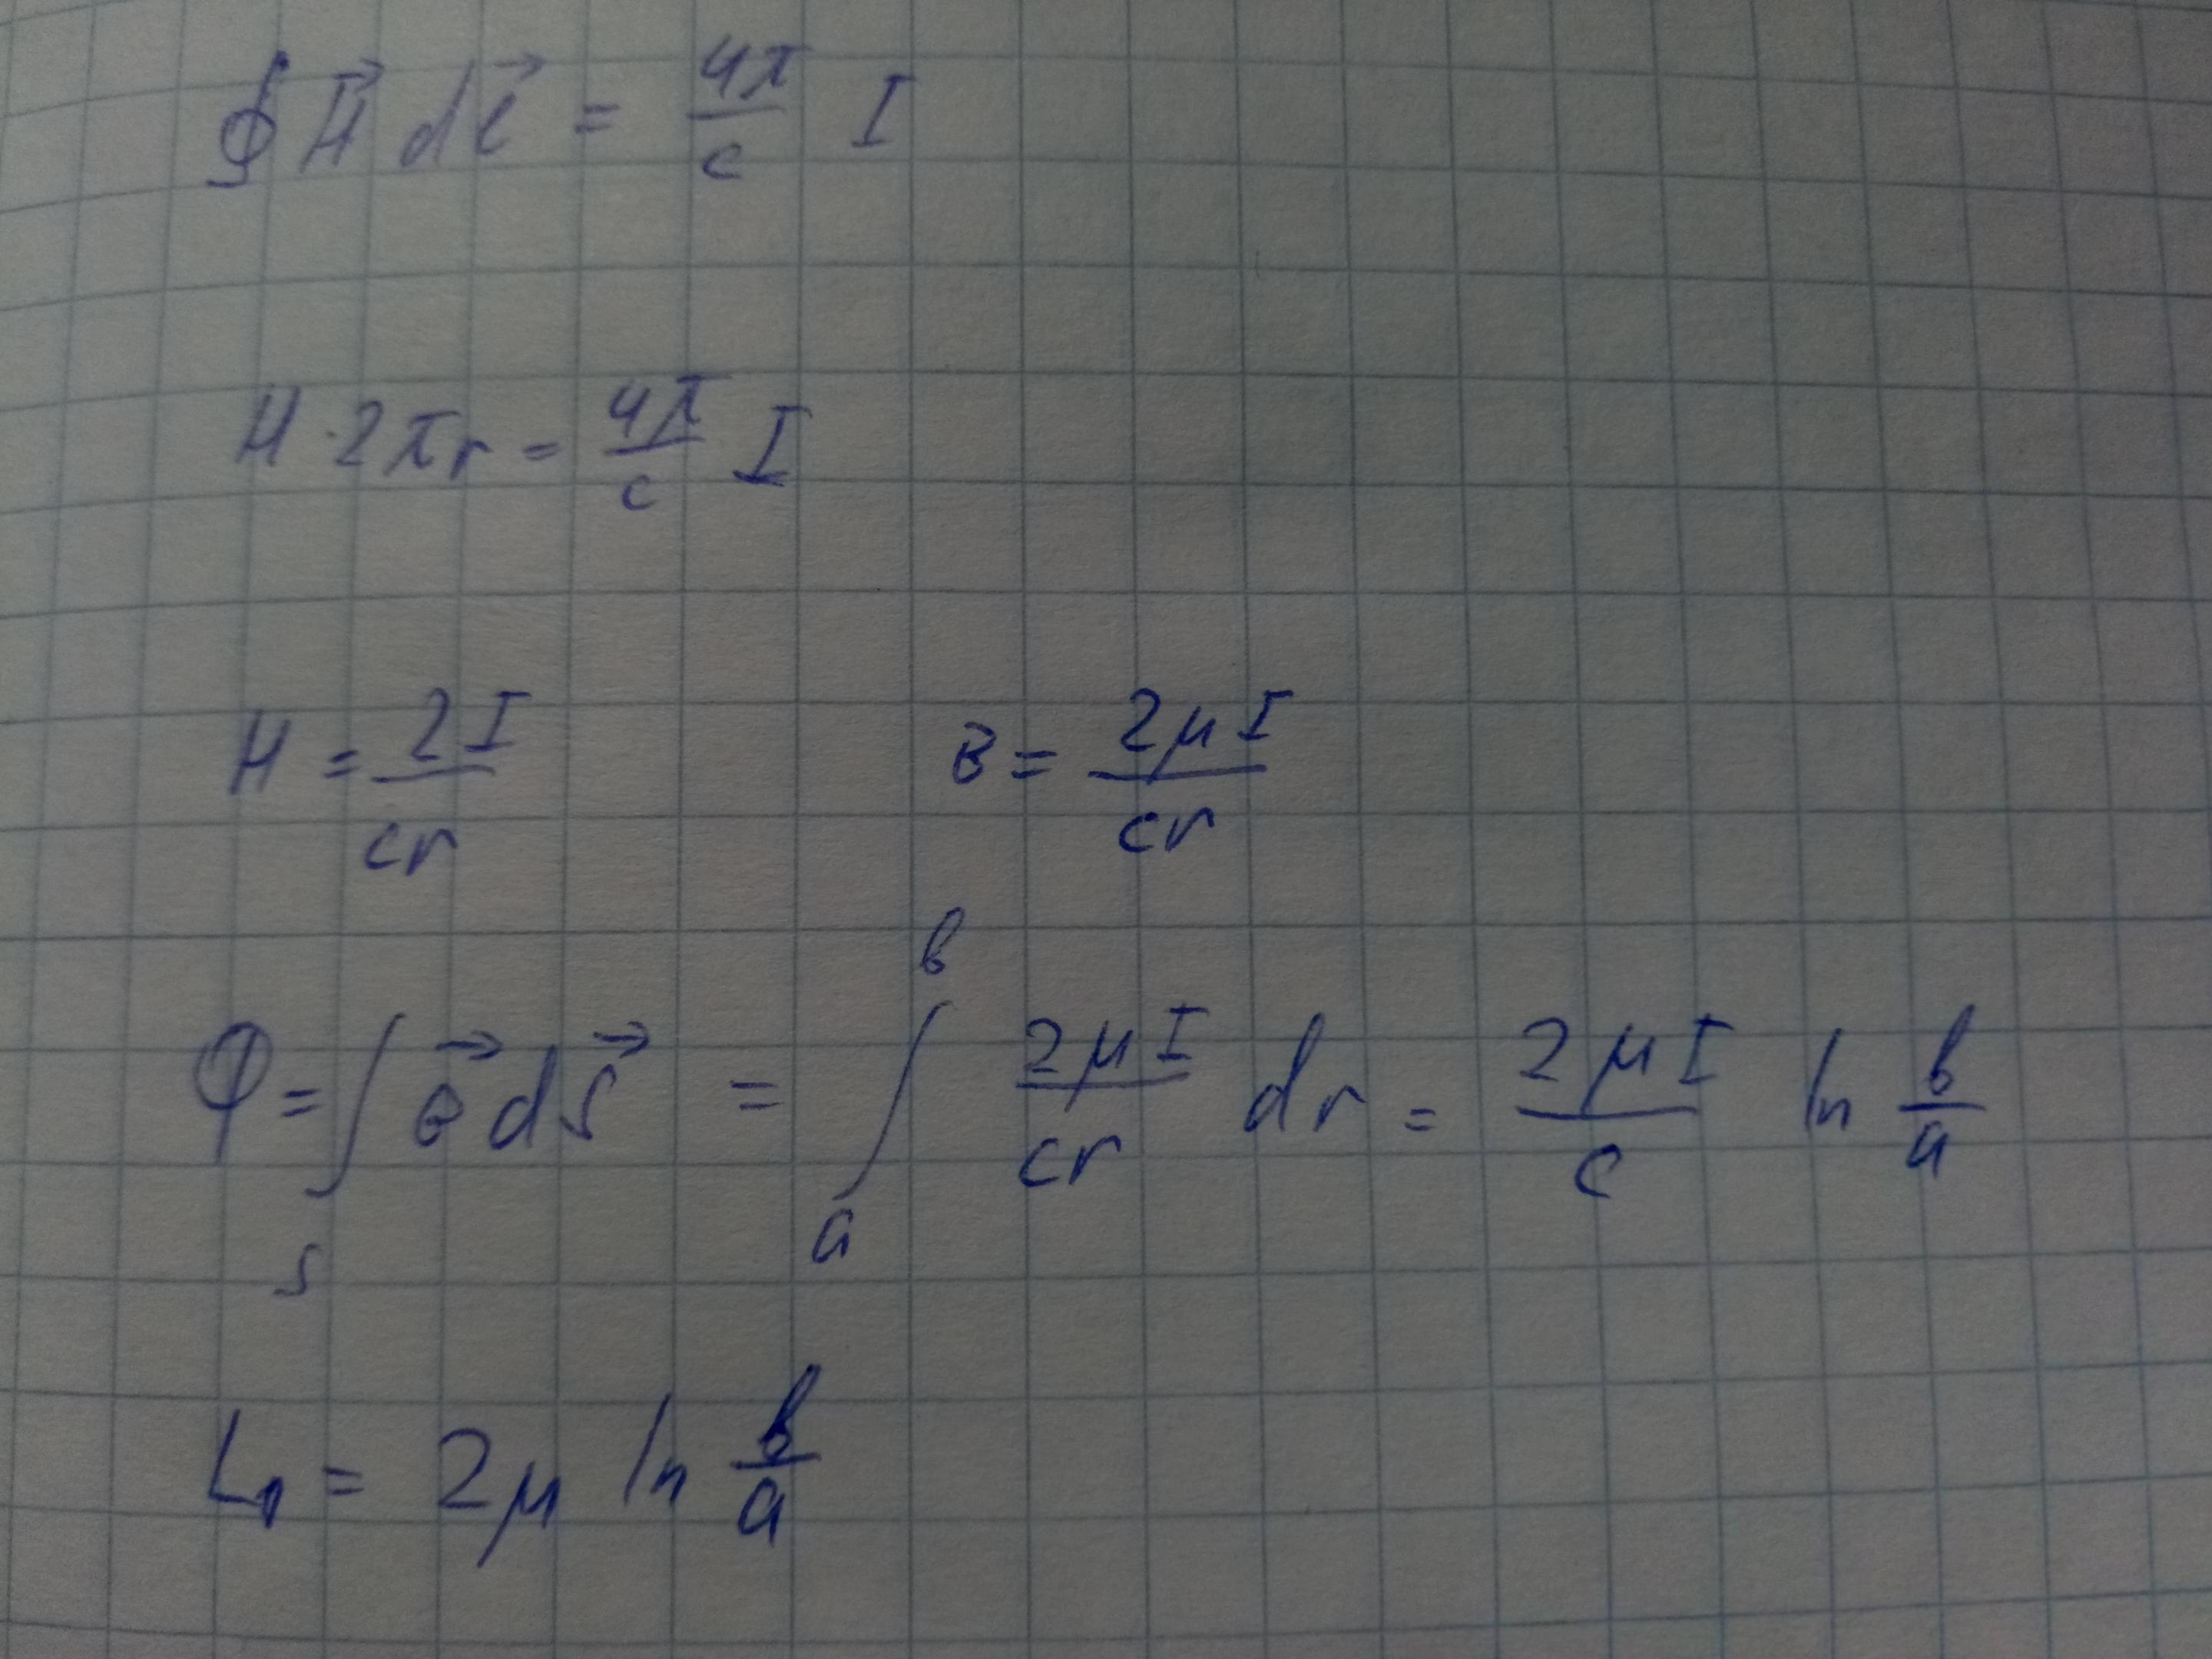 ∮ H⃗ dℓ⃗ = 4π/c I
H · 2πr = 4π/c I
H = 2I/cr    B = 2μI/cr
Φ = ∫_S B⃗ dS⃗ = ∫_a^b 2μI/cr dr = 2μI/c ln b/a
L₁ = 2μ ln b/a